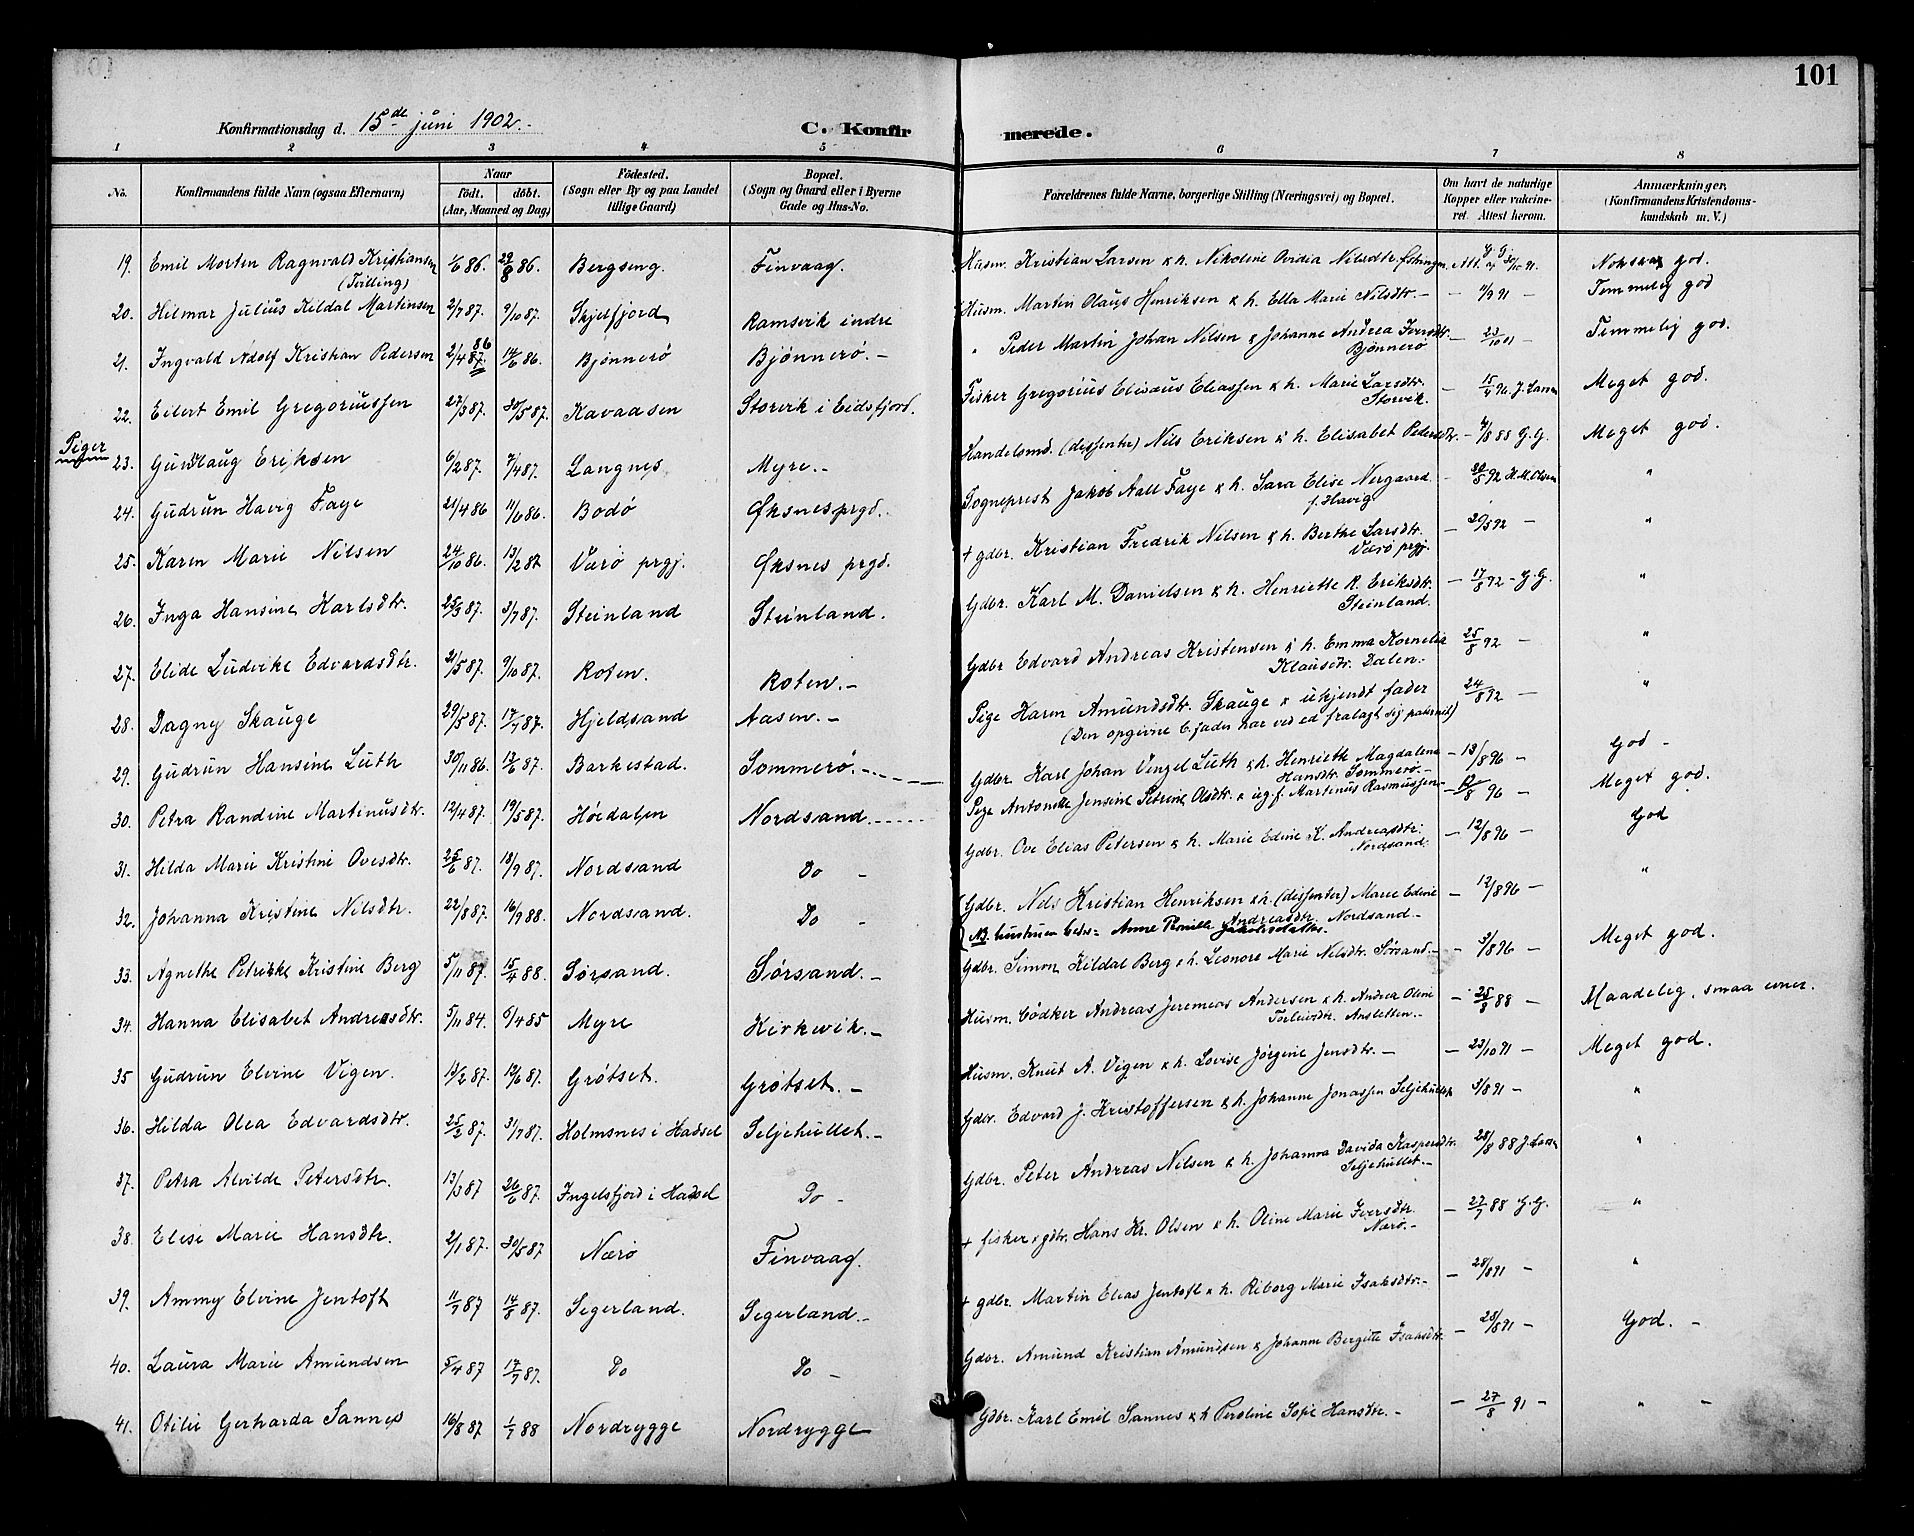 101
Konfirmationsdag d. 15de juni 1902.
C. Konfirmerede.
1 2 3 4 5 6 7 8
No. Konfirmandens fulde Navn (ogsaa Efternavn) Naar født. døbt. (Aar, Maaned og Dag) Fødested. (Sogn eller By og paa Landet tillige Gaard) Bopæl. (Sogn og Gaard eller i Byerne Gade og Hus-No. Forældrenes fulde Navne, borgerlige Stilling (Næringsvei) og Bopæl. Om havt de naturlige Kopper eller vakcineret. Attest herom. Anmærkninger, (Konfirmandens Kristendomskundskab m. V.)
19. Emil Morten Ragnvald Kristiansen (Tvilling) 1/6 86. 29/8 86. Bergseng. Finvaag. Husm. Kristian Larsen & h. Nikoline Ovidia Nilsdtr. Att. 30/10 91. god.
20. Hilmar Julius Kildal Martinsen 2/7 87. 9/10 87. Skjelfjord Ramsvik indre Husm. Martin Olaus Henriksen & h. Ella Marie Nilsdtr. - - 11/9 91 - Temmelig god
21. Ingvald Adolf Kristian Pedersen 2/4 87. 86 14/6 86. Bjønnerø Bjønnerø. - " Peder Martin Johan Nilsen & Johanne Andrea Iversdtr. Bjønnerø - 23/10 01 - Temmelig god.
22. Eilert Emil Gregoriussen 27/3 87. 30/5 87. Kavaasen Storvik i Eidsfjord. Fisker Gregorius Elisæus Eliassen & h. Marie Larsdtr. Storvik. - 15/4 96 J. Larsen Meget god.
Piger
23. Gudlaug Eriksen 6/2 87. 7/4 87. Langnes Myre. - Handelsmd. (dissenter) Nils Eriksen & h. Elisabet Pedersdtr. - 4/8 88 G. G. Meget god.
24. Gudrun Havig Faye 21/4 86 11/6 86. Bodø Øksnes prgd. Sogneprest Jakob Aall Faye & h. Sara Elise Nergaard f. Havig - 20/5 92 H. M. Olsen "
25. Karen Marie Nilsen 24/10 86. 13/2 87 Værø prgj. Øksnes prgd. + gdbr. Kristian Fredrik Nilsen & h. Berthe Larsdtr. Værø prgj. - 20/5 92 - "
26. Inga Hansine Karlsdtr. 25/3 87. 3/7 87. Steinland Steinland. Gdbr. Karl M. Danielsen & h. Henriette R. Eriksdtr. Steinland. - 17/8 92 - G. G. "
27. Elide Ludvike Edvardsdtr. 21/5 87. 9/10 87. Roten. Roten. - Gdbr Edvard Andreas Kristensen & h. Emma Kornelia Klausdtr. Dalen. 25/8 92 - "
28. Dagny Skauge 29/5 87. 17/7 87. Hjeldsand Aasen. - Pige Karen Amundsdtr. Skauge & ukjendt fader (Den opgivne b. fader har ved ed fralagt sig paternit) 24/8 92 - "
29. Gudrun Hansine Luth 30/11 86. 12/6 87. Barkestad. Sommerø. - Gdbr. Karl Johan Vingel Luth & h. Henriette Magdalena Hansdtr. Sommerø. - - 13/8 96 - God -
30. Petra Randine Martinusdtr. 12/4 87. 19/5 87. Høidalen Nordsand. Pige Antonette Jensine Petrine Olsdtr. & ug. f. Martinus Rasmussen - 12/8 96 - Meget god.
31. Hilda Marie Kristine Ovesdtr. 25/6 87. 18/9 87. Nordsand Do - Gdbr. Ove Elias Petersen & h. Marie Edine K. Andreasdtr. Nordsand. - 12/8 96 - God
32. Johanna Kristine Nilsdtr. 22/8 87. 16/9 88. Nordsand. Do - Gdbr. Nils Kristian Henriksen & h. (dissenter) Marie Edine Andreasdtr. Nordsand - - 12/8 96 - "
(NB. hustruen heter: Anne Pernille
33. Agnethe Petrikke Kristine Berg 5/11 87. 15/4 88. Sørsand. Sørsand. - Gdbr. Simon Kildal Berg & h. Leonore Marie Nilsdtr. Sørsand. - - 3/8 96 - Meget god.
34. Hanna Elisabet Andreasdtr. 5/11 84. 6/4 85 Myre Kirkevik. - Husm. bødker Andreas Jeremias Andersen & h. Andrea Oline Torleivsdtr. Ansletten. - - 25/8 88 - Maadelig. smaa evner.
35 Gudrun Elvine Vigen. 13/2 87. 19/6 87. Grøtset. Grøtset. - Husm. Knut A. Vigen & h. Lovise Jørgine Jensdtr. - - 23/10 91 - Meget god.
36. Hilda Olea Edvardsdtr. 25/2 87. 31/7 87. Holmsnes i Hadsel Seljehullet. - Gdbr. Edvard J. Kristoffersen & h. Johanne Jonassen Seljehullet 3/8 91 - "
37. Petra Alvilde Petersdtr. 13/3 87 26/6 87. Ingelsfjord i Hadsel Do - Gdbr. Peter Andreas Nilsen & h. Johanna Davida Kaspersdtr. Seljehullet. - 28/8 88 J. Larsen "
38. Elise Marie Hansdtr. 2/1 87. 30/5 87 Nærø Finvaag. + fisker & gdbr. Hans Kr. Olsen & h. Oline Marie Iversdtr. Nærø. - - 27/7 88 G. G. "
39. Ammy Elvine Jentoft 11/7 87 14/8 87. Segerland. Segerland. - + gdbr. Martin Elias Jentoft & h. Riborg Marie Isaksdtr. - - 28/8 91 - "
40. Laura Marie Amundsen 5/4 87 17/7 87. Do Do - Gdbr. Amund Kristian Amundsen & Johanne Bergitte Isaksdtr. - 28/8 91 - God. -
41. Otilie Gerharda Sannes 16/8 87 1/7 88 Nordrygge Nordrygge Gdbr. Karl Emil Sannes & h Peroline Sofie Hansdtr. - - 27/8 91 - " -